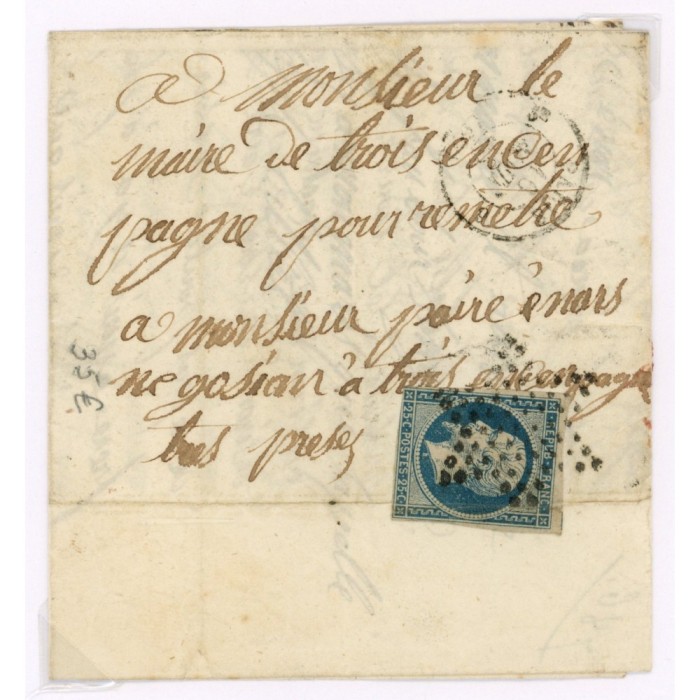 a monsieur le
maire de trois en cen
pagne pour remetre
a monsieur paire énors
negosian à trois
tres presez
35 €
25 C. POSTES 25 C.
REPUB. FRANC.